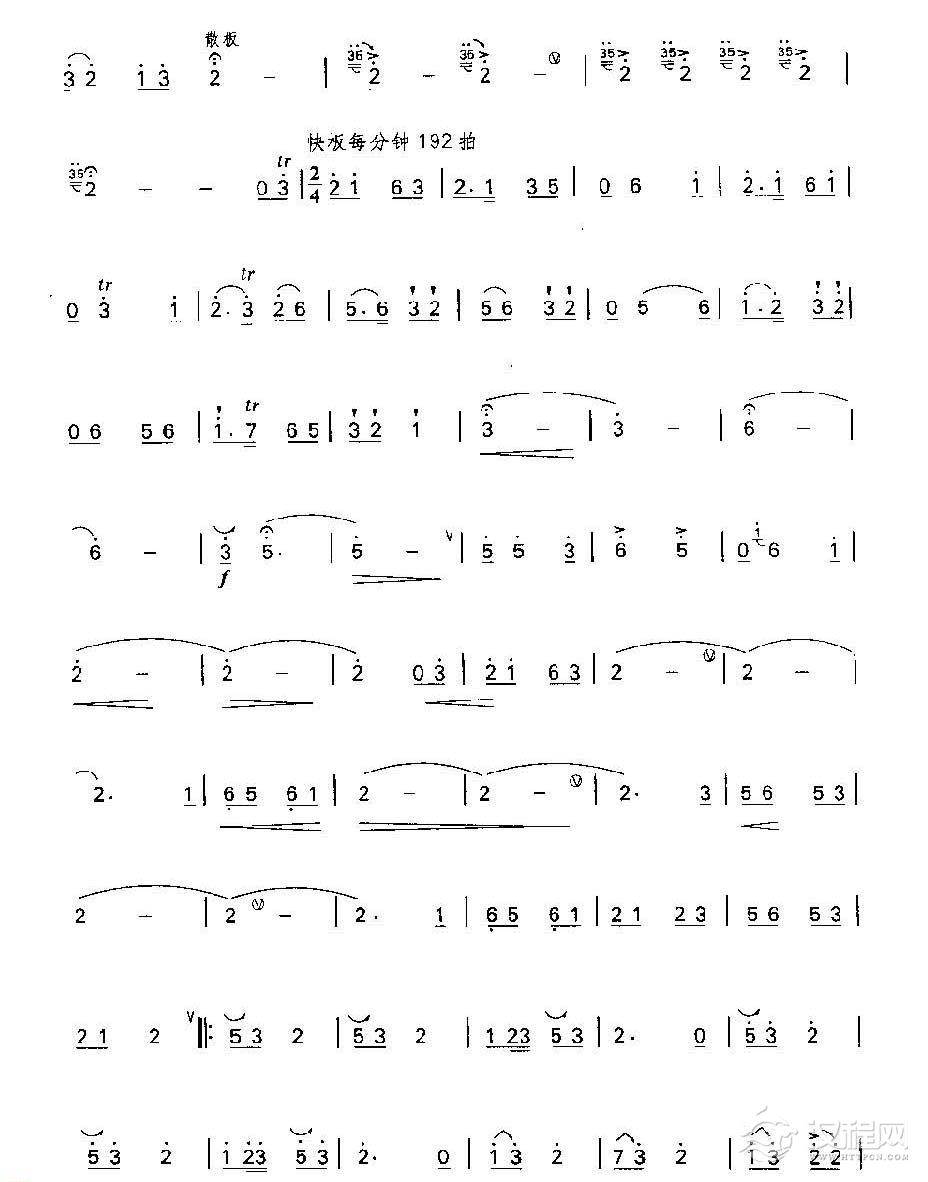 散板
3 2 1 3 2 – | 35 2 – 35 2 – V | 35 2 35 2 35 2 35 2 |
快板每分钟192拍
35 2 – – 0 3 tr | 2/4 2 1 6 3 | 2. 1 3 5 | 0 6 1 | 2. 1 6 1 |
0 3 tr 1 | 2. 3 tr 2 6 | 5. 6 3 2 | 5 6 3 2 | 0 5 6 | 1. 2 3 2 |
0 6 5 6 | 1. 7 tr 6 5 | 3 2 1 | 3 – | 3 – | 6 – |
6 – | 3 5. | 5 – V | 5 5 3 | 6 5 | 0 1 6 1 |
f
2 – | 2 – | 2 0 3 | 2 1 6 3 | 2 – V | 2 – |
2. 1 | 6 5 6 1 | 2 – | 2 – V | 2. 3 | 5 6 5 3 |
2 – | 2 V – | 2. 1 | 6 5 6 1 | 2 1 2 3 | 5 6 5 3 |
2 1 2 V ‖: 5 3 2 | 5 3 2 | 1 2 3 5 3 | 2. 0 | 5 3 2 |
5 3 2 | 1 2 3 5 3 | 2. 0 | 1 3 2 | 7 3 2 | 1 3 2 2 |
汉程网
WWW.HTTPCN.COM